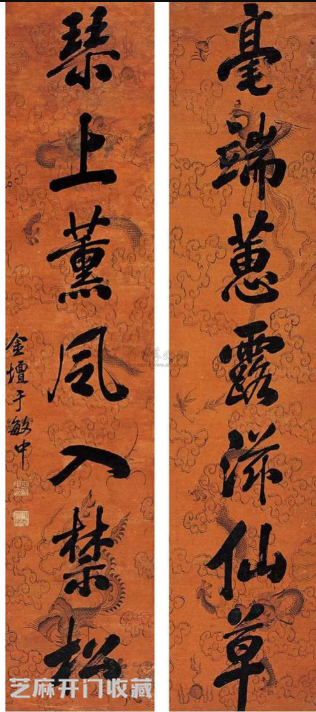 毫端蕙露滋仙草
琴上薰风入禁松
金壇于敏中
芝麻开门收藏